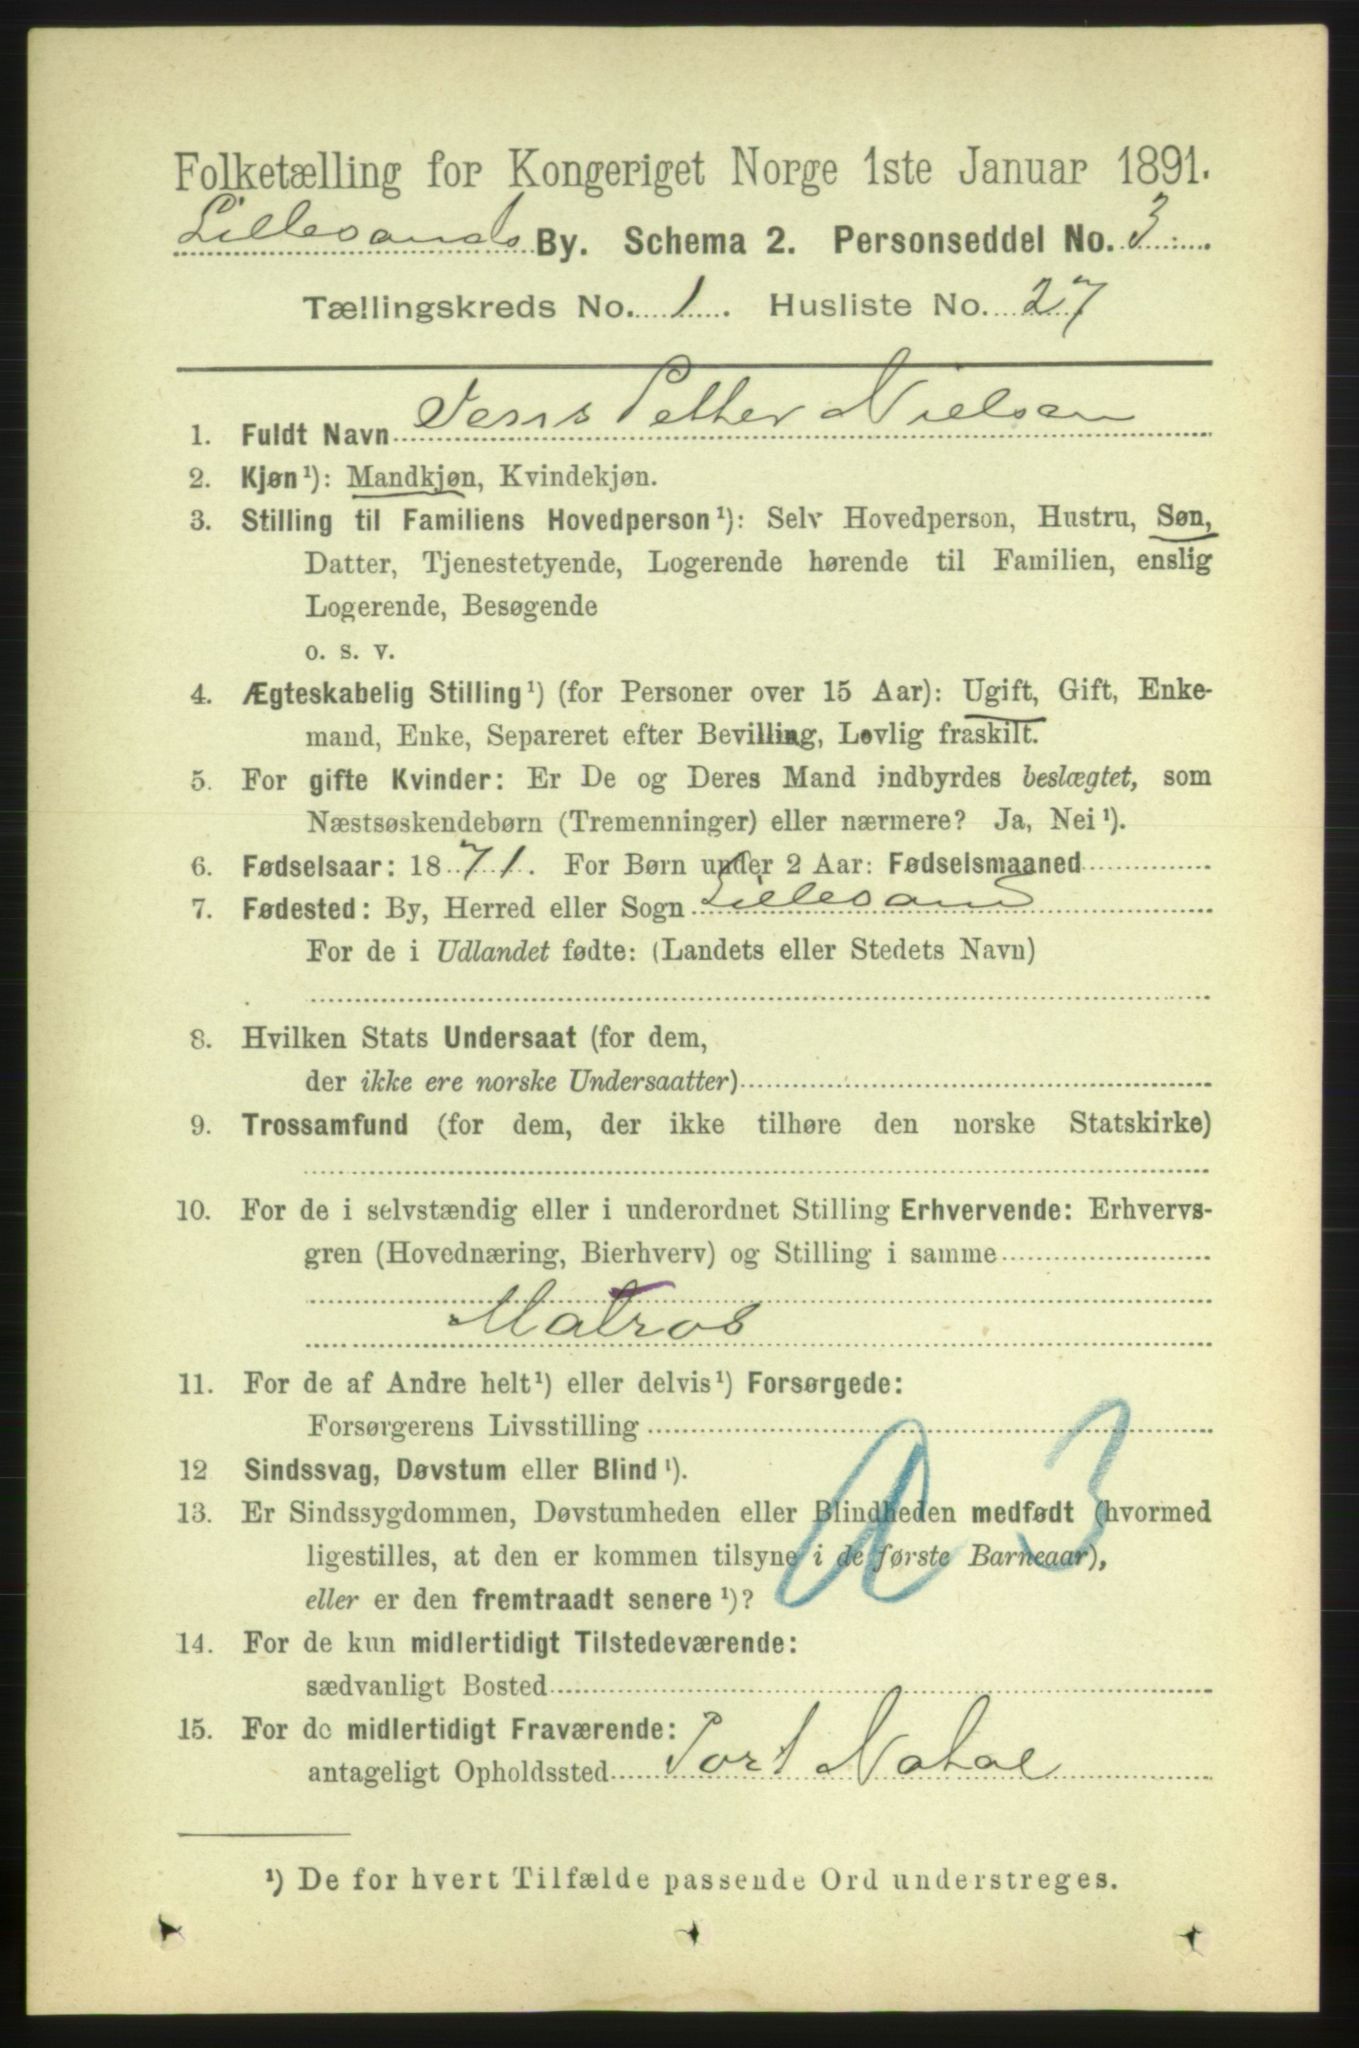 Folketælling for Kongeriget Norge 1ste Januar 1891.
Lillesands By. Schema 2. Personseddel No. 3
Tællingskreds No. 1. Husliste No. 27
1. Fuldt Navn Jens Petter Nielsen
2. Kjøn¹): Mandkjøn, Kvindekjøn.
3. Stilling til Familiens Hovedperson¹): Selv Hovedperson, Hustru, Søn,
Datter, Tjenestetyende, Logerende hørende til Familien, enslig
Logerende, Besøgende
o. s. v.
4. Ægteskabelig Stilling¹) (for Personer over 15 Aar): Ugift, Gift, Enke-
mand, Enke, Separeret efter Bevilling, Lovlig fraskilt.
5. For gifte Kvinder: Er De og Deres Mand indbyrdes beslægtet, som
Næstsøskendebørn (Tremenninger) eller nærmere? Ja, Nei¹).
6. Fødselsaar: 1871. For Børn under 2 Aar: Fødselsmaaned
7. Fødested: By, Herred eller Sogn Lillesand
For de i Udlandet fødte: (Landets eller Stedets Navn)
8. Hvilken Stats Undersaat (for dem,
der ikke ere norske Undersaatter)
9. Trossamfund (for dem, der ikke tilhøre den norske Statskirke)
10. For de i selvstændig eller i underordnet Stilling Erhvervende: Erhvervs-
gren (Hovednæring, Bierhverv) og Stilling i samme
Matros
11. For de af Andre helt¹) eller delvis¹) Forsørgede:
Forsørgerens Livsstilling
12 Sindssvag, Døvstum eller Blind¹).
13. Er Sindssygdommen, Døvstumheden eller Blindheden medfødt (hvormed
ligestilles, at den er kommen tilsyne i de første Barneaar),
eller er den fremtraadt senere¹)?
14. For de kun midlertidigt Tilstedeværende:
sædvanligt Bosted
15. For de midlertidigt Fraværende:
antageligt Opholdssted Port Natal
¹) De for hvert Tilfælde passende Ord understreges.